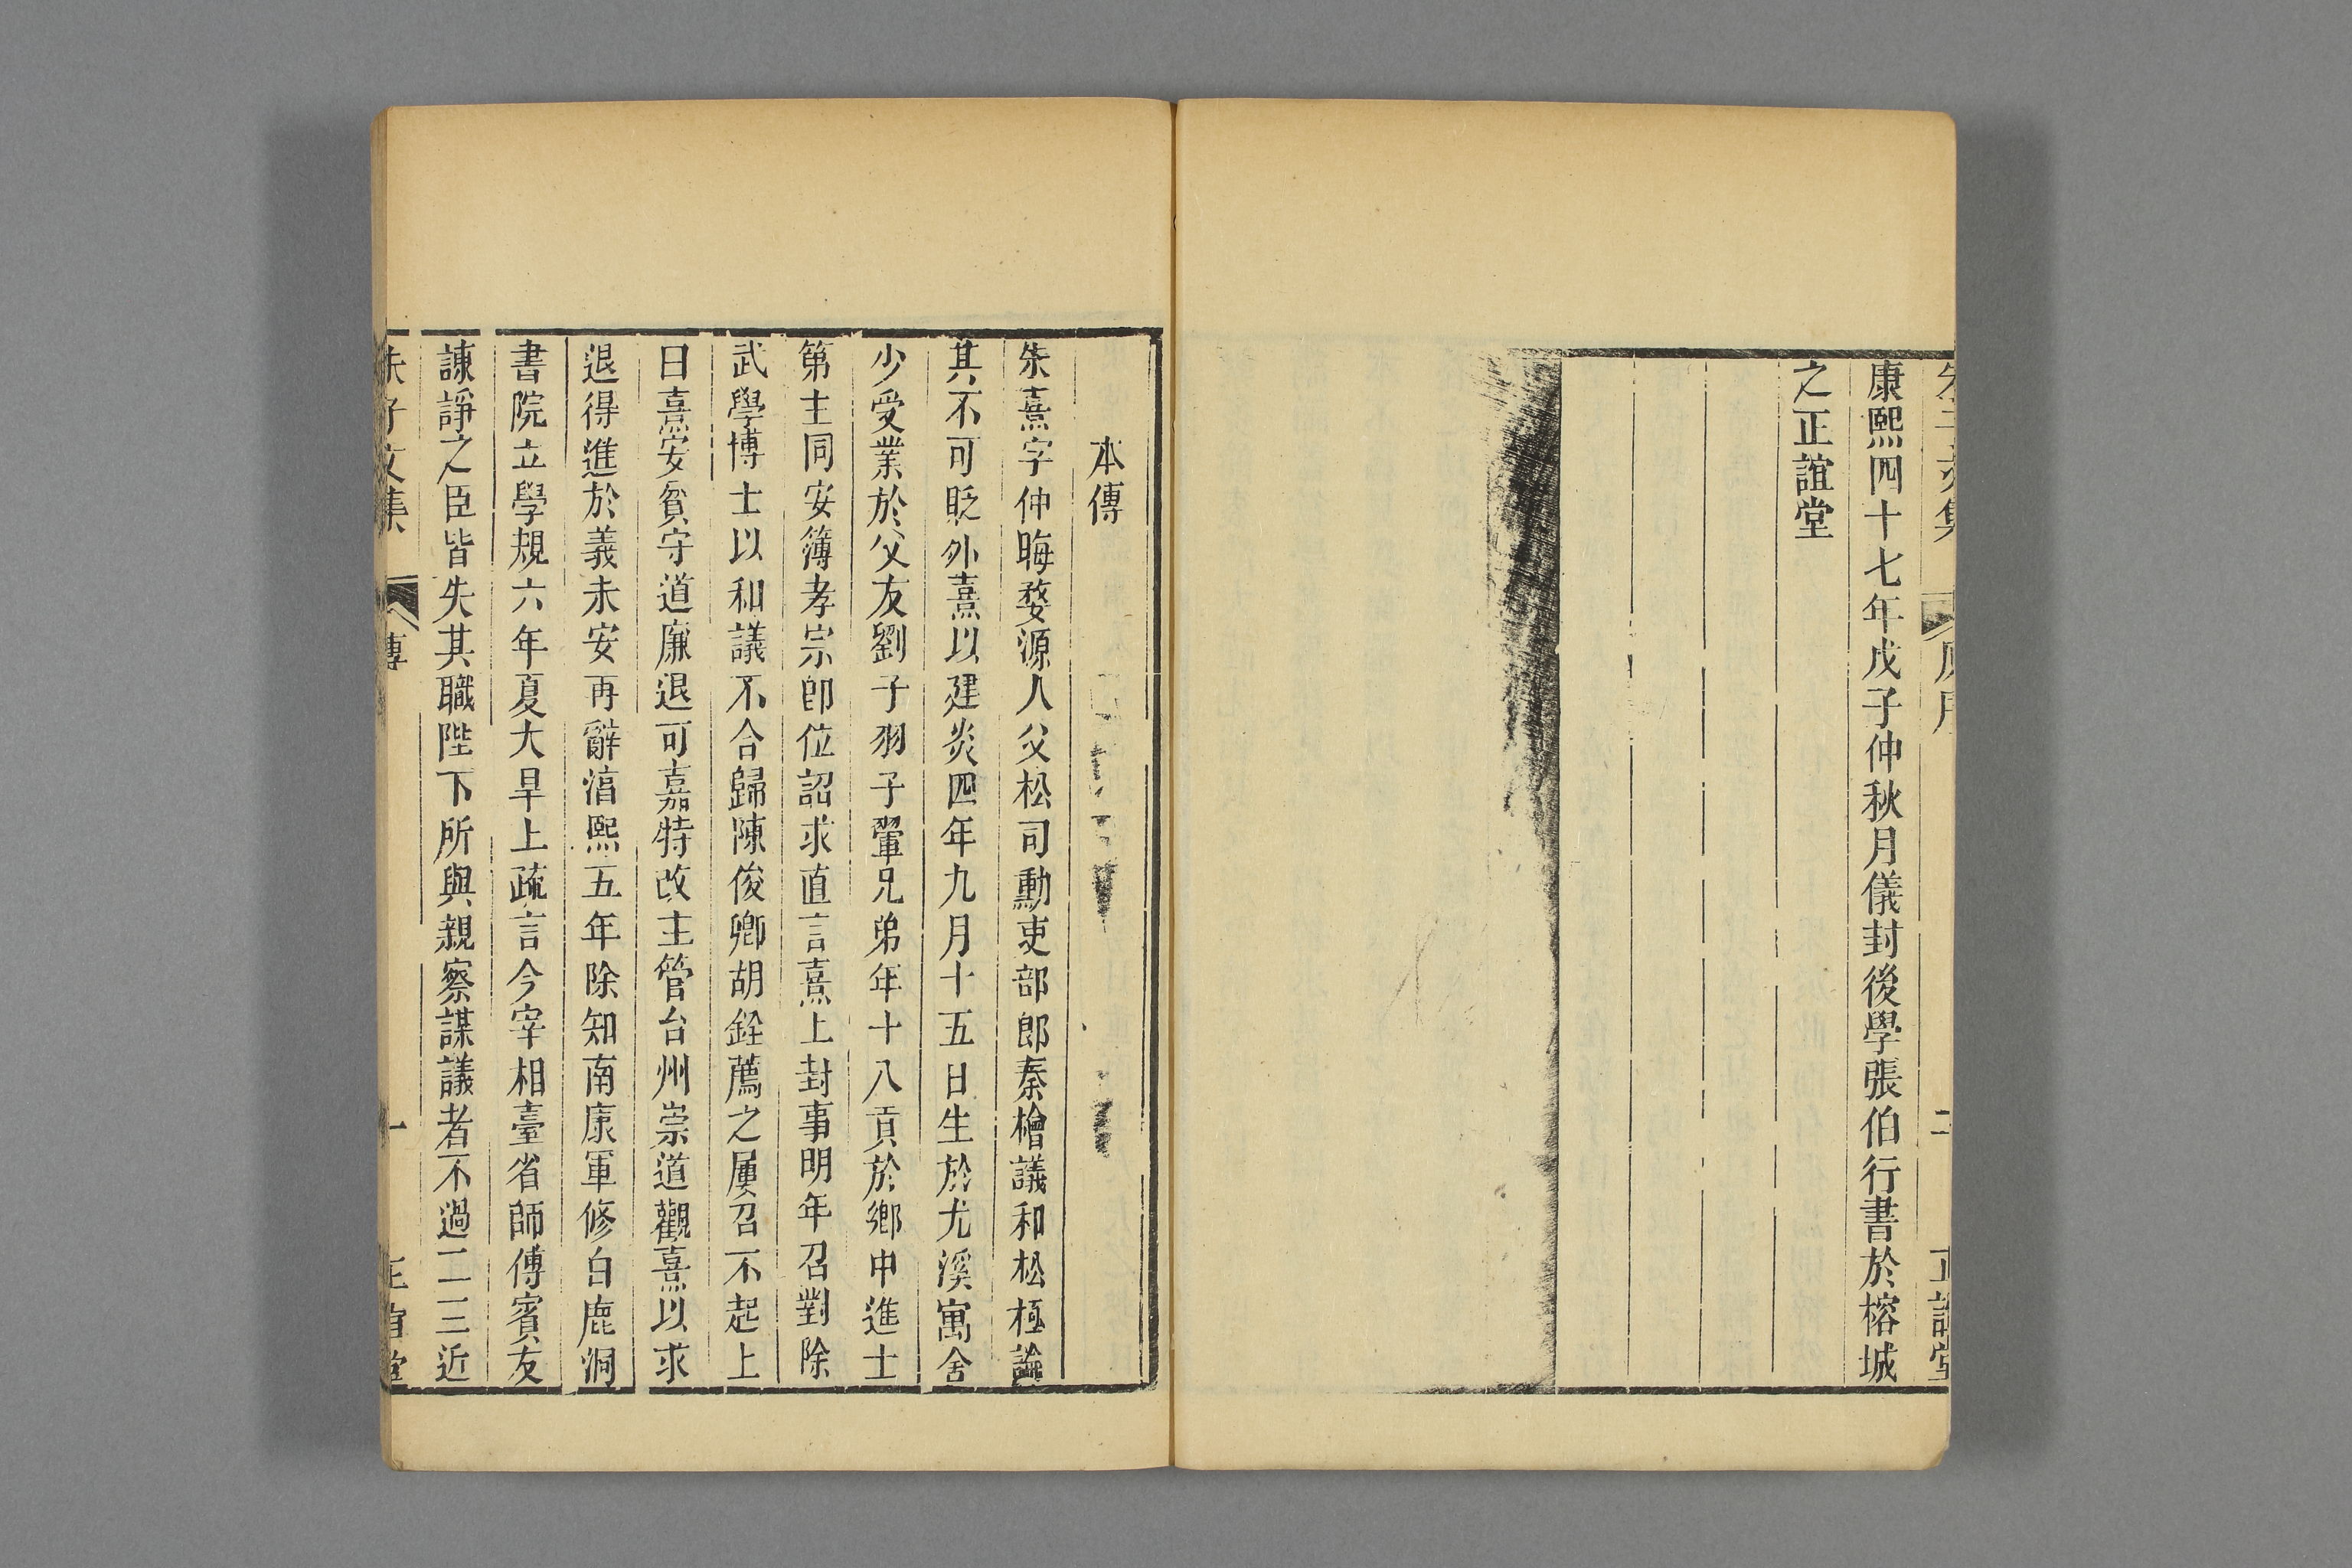 康熙四十七年戊子仲秋月儀封後學張伯行書於榕城
之正誼堂
本傳
朱熹字仲晦婺源人父松司勳吏部郎秦檜議和松極論
其不可貶外熹以建炎四年九月十五日生於尤溪寓舍
少受業於父友劉子羽子翬兄弟年十八貢於鄉中進士
第主同安簿孝宗卽位詔求直言熹上封事明年召對除
武學博士以和議不合歸陳俊卿胡銓薦之屢召不起上
曰熹安貧守道廉退可嘉特改主管台州崇道觀熹以求
退得進於義未安再辭淳熙五年除知南康軍修白鹿洞
書院立學規六年夏大旱上疏言今宰相臺省師傅賓友
諫諍之臣皆失其職陛下所與親察謀議者不過一二三近
朱子文集 傳 一 正誼堂